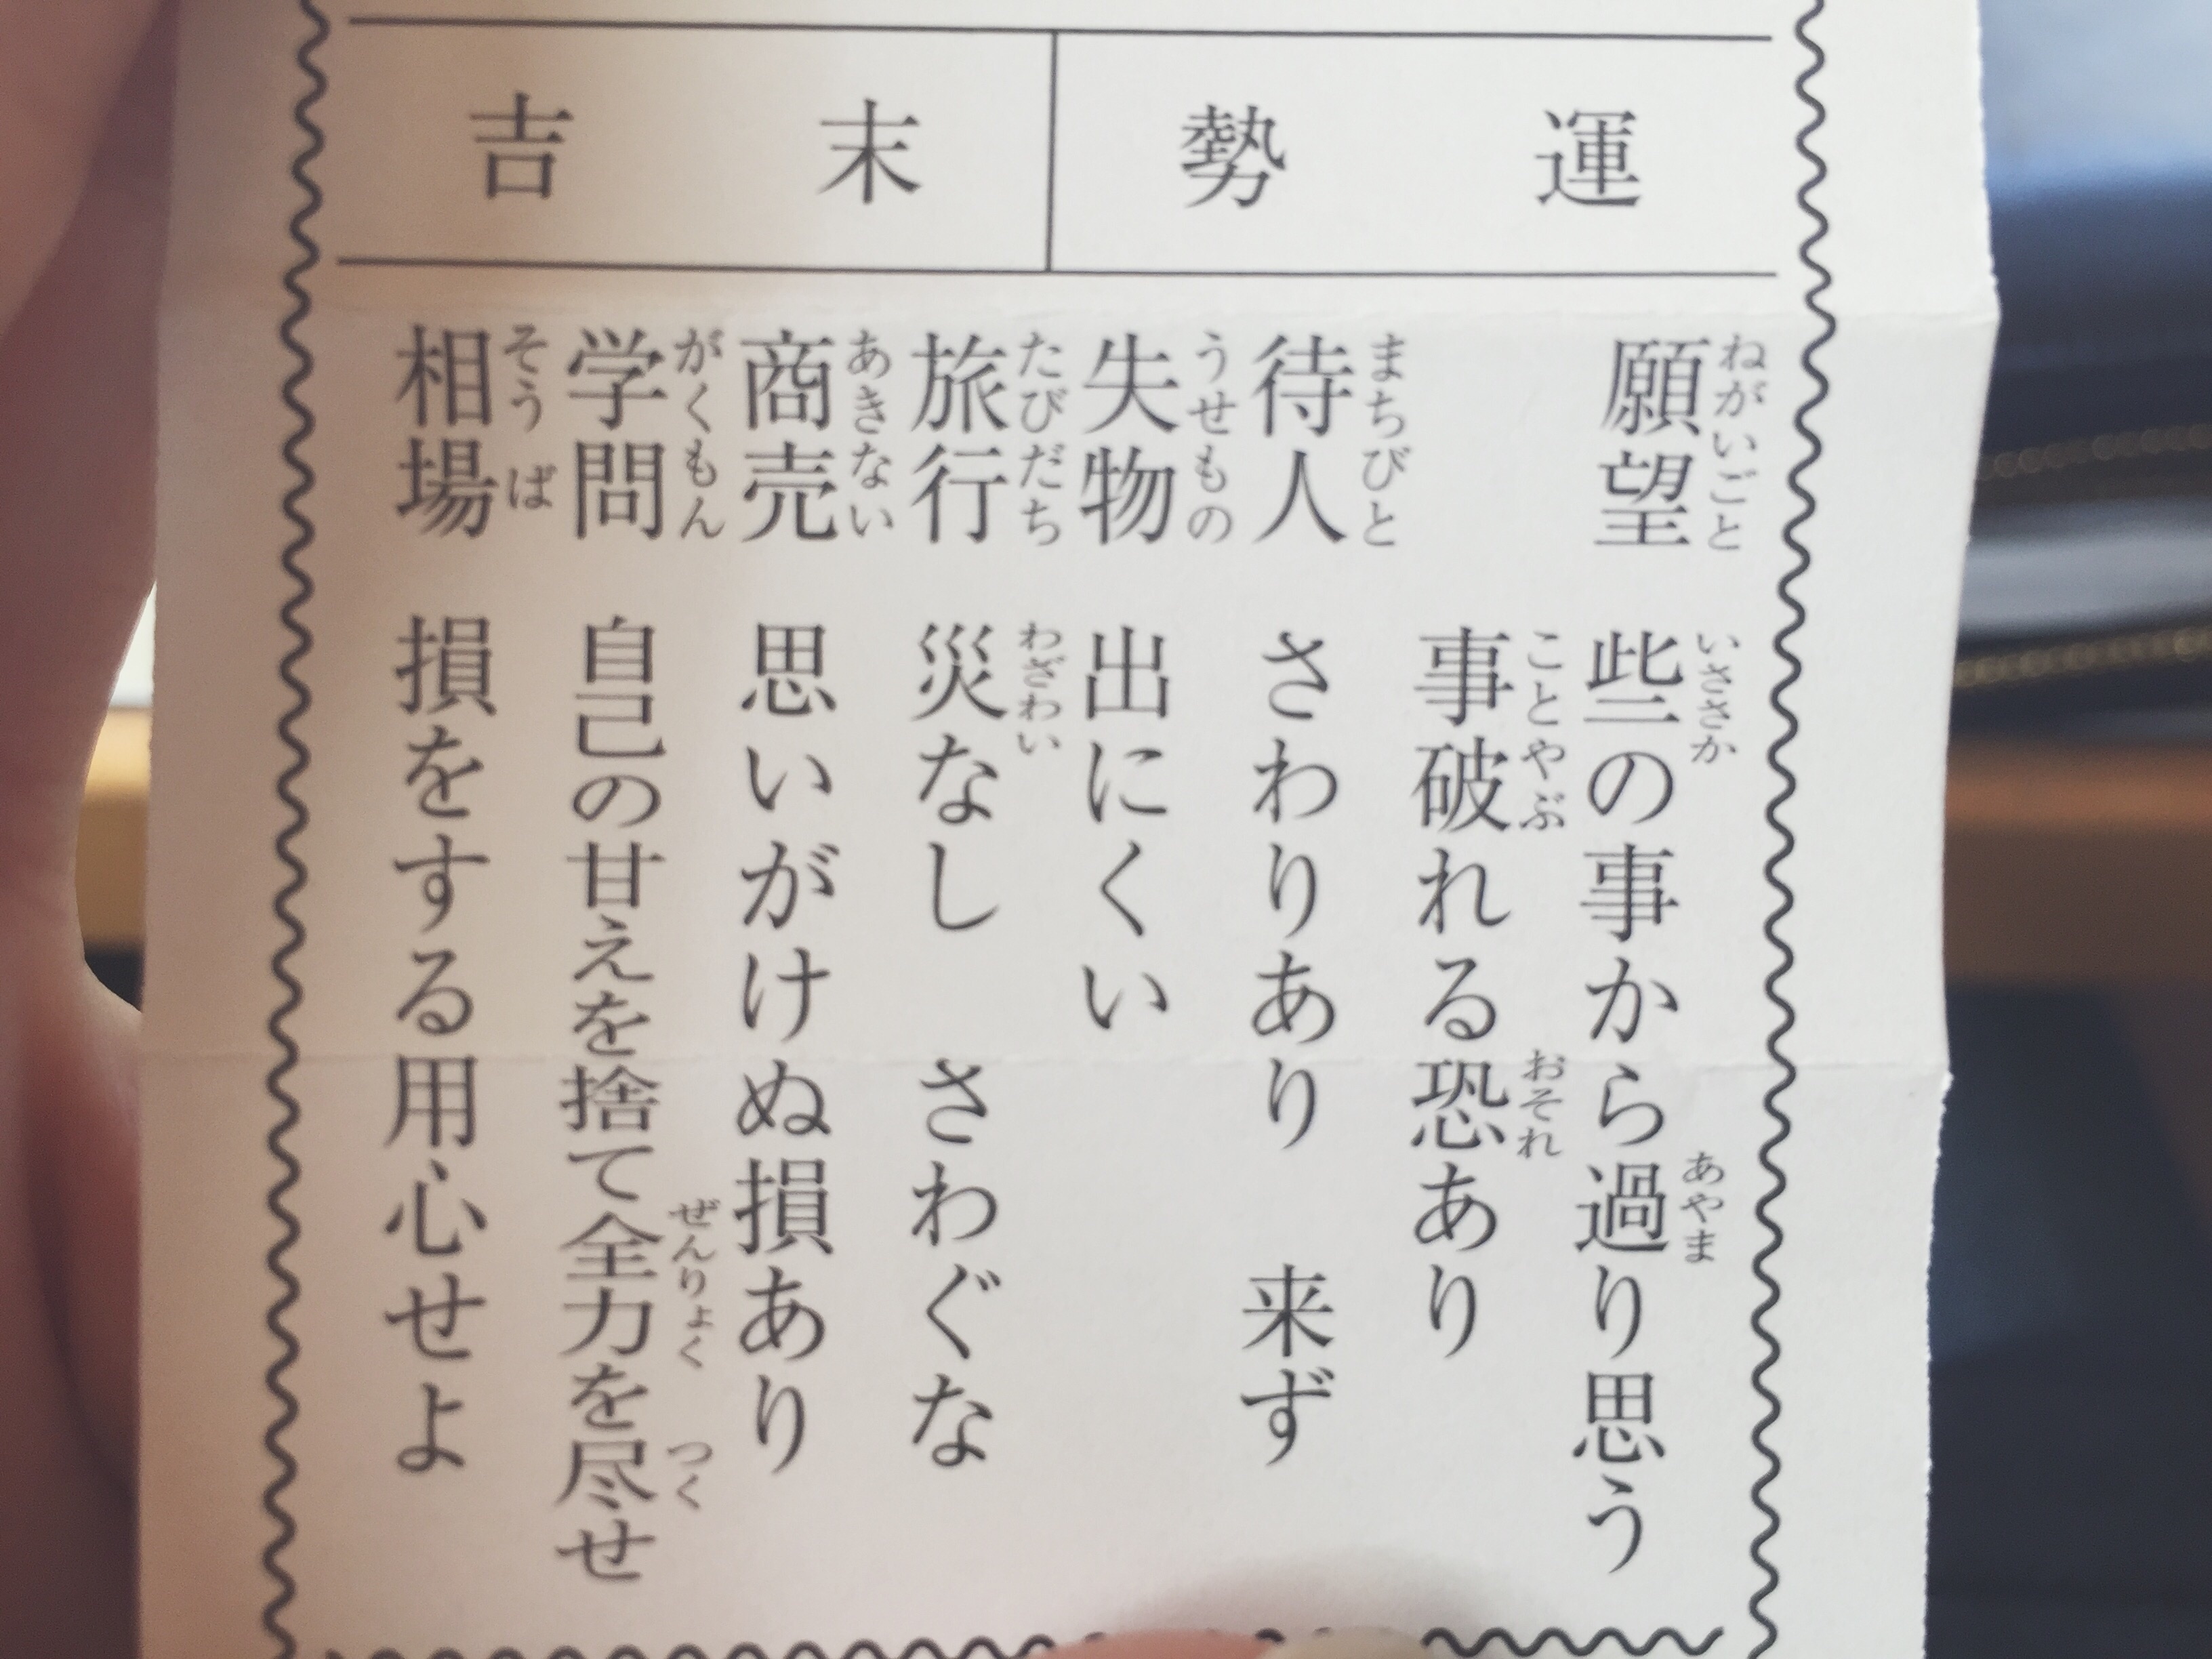 運勢 末吉
願望 些の事から過り思う
事破れる恐あり
待人 さわりあり 来ず
失物 出にくい
旅行 災なし さわぐな
商売 思いがけぬ損あり
学問 自己の甘えを捨て全力を尽せ
相場 損をする用心せよ
ねがいごと いささか あやま
ことやぶ おそれ
まちびと
うせもの
たびだち わざわい
あきない
がくもん ぜんりょく つく
そうば